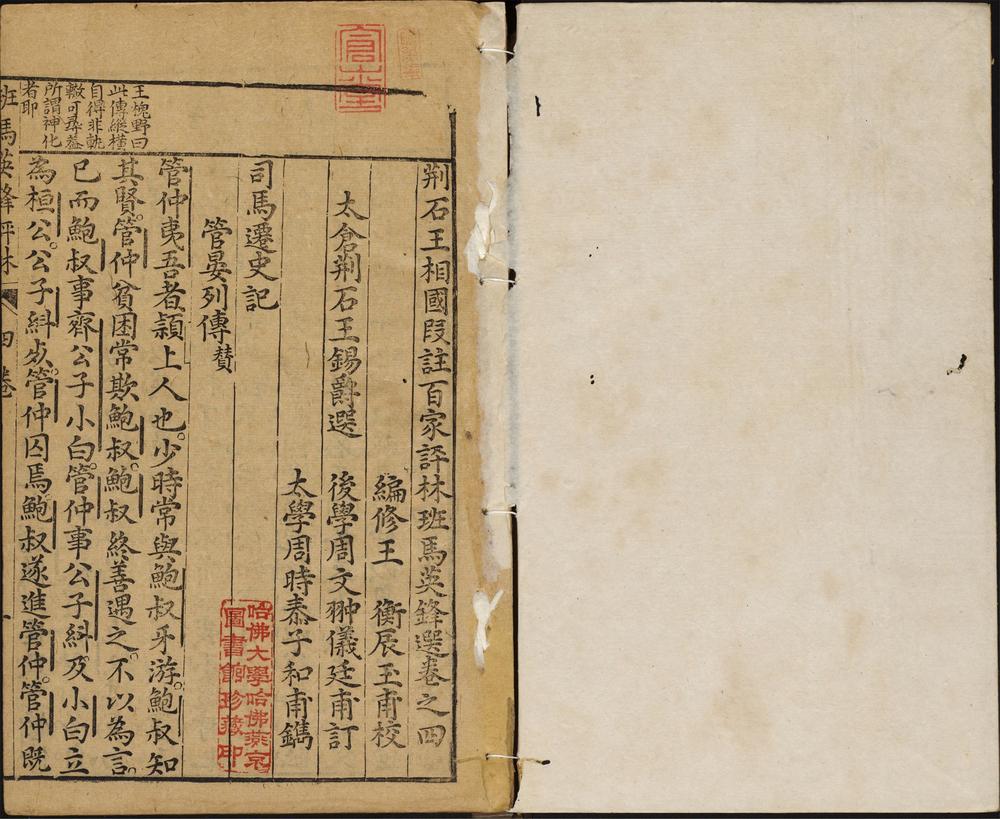 荆石王相國叚註百家評林班馬英鋒選卷之四
編修王　衡辰玉甫校
太倉荆石王錫爵選　後學周文翀儀廷甫訂
太學周時泰子和甫鐫
司馬遷史記
管晏列傳賛
管仲夷吾者頴上人也少時常與鮑叔牙游鮑叔知
其賢管仲貧困常欺鮑叔鮑叔終善遇之不以為言
已而鮑叔事齊公子小白管仲事公子糾及小白立
為桓公公子糾死管仲囚焉鮑叔遂進管仲管仲既
王槐野曰
此傳縱橫
自得非軌
轍可尋葢
所謂神化
者耶
班馬英鋒評林　四卷　一
哈佛大學哈佛燕京
圖書館珍藏印